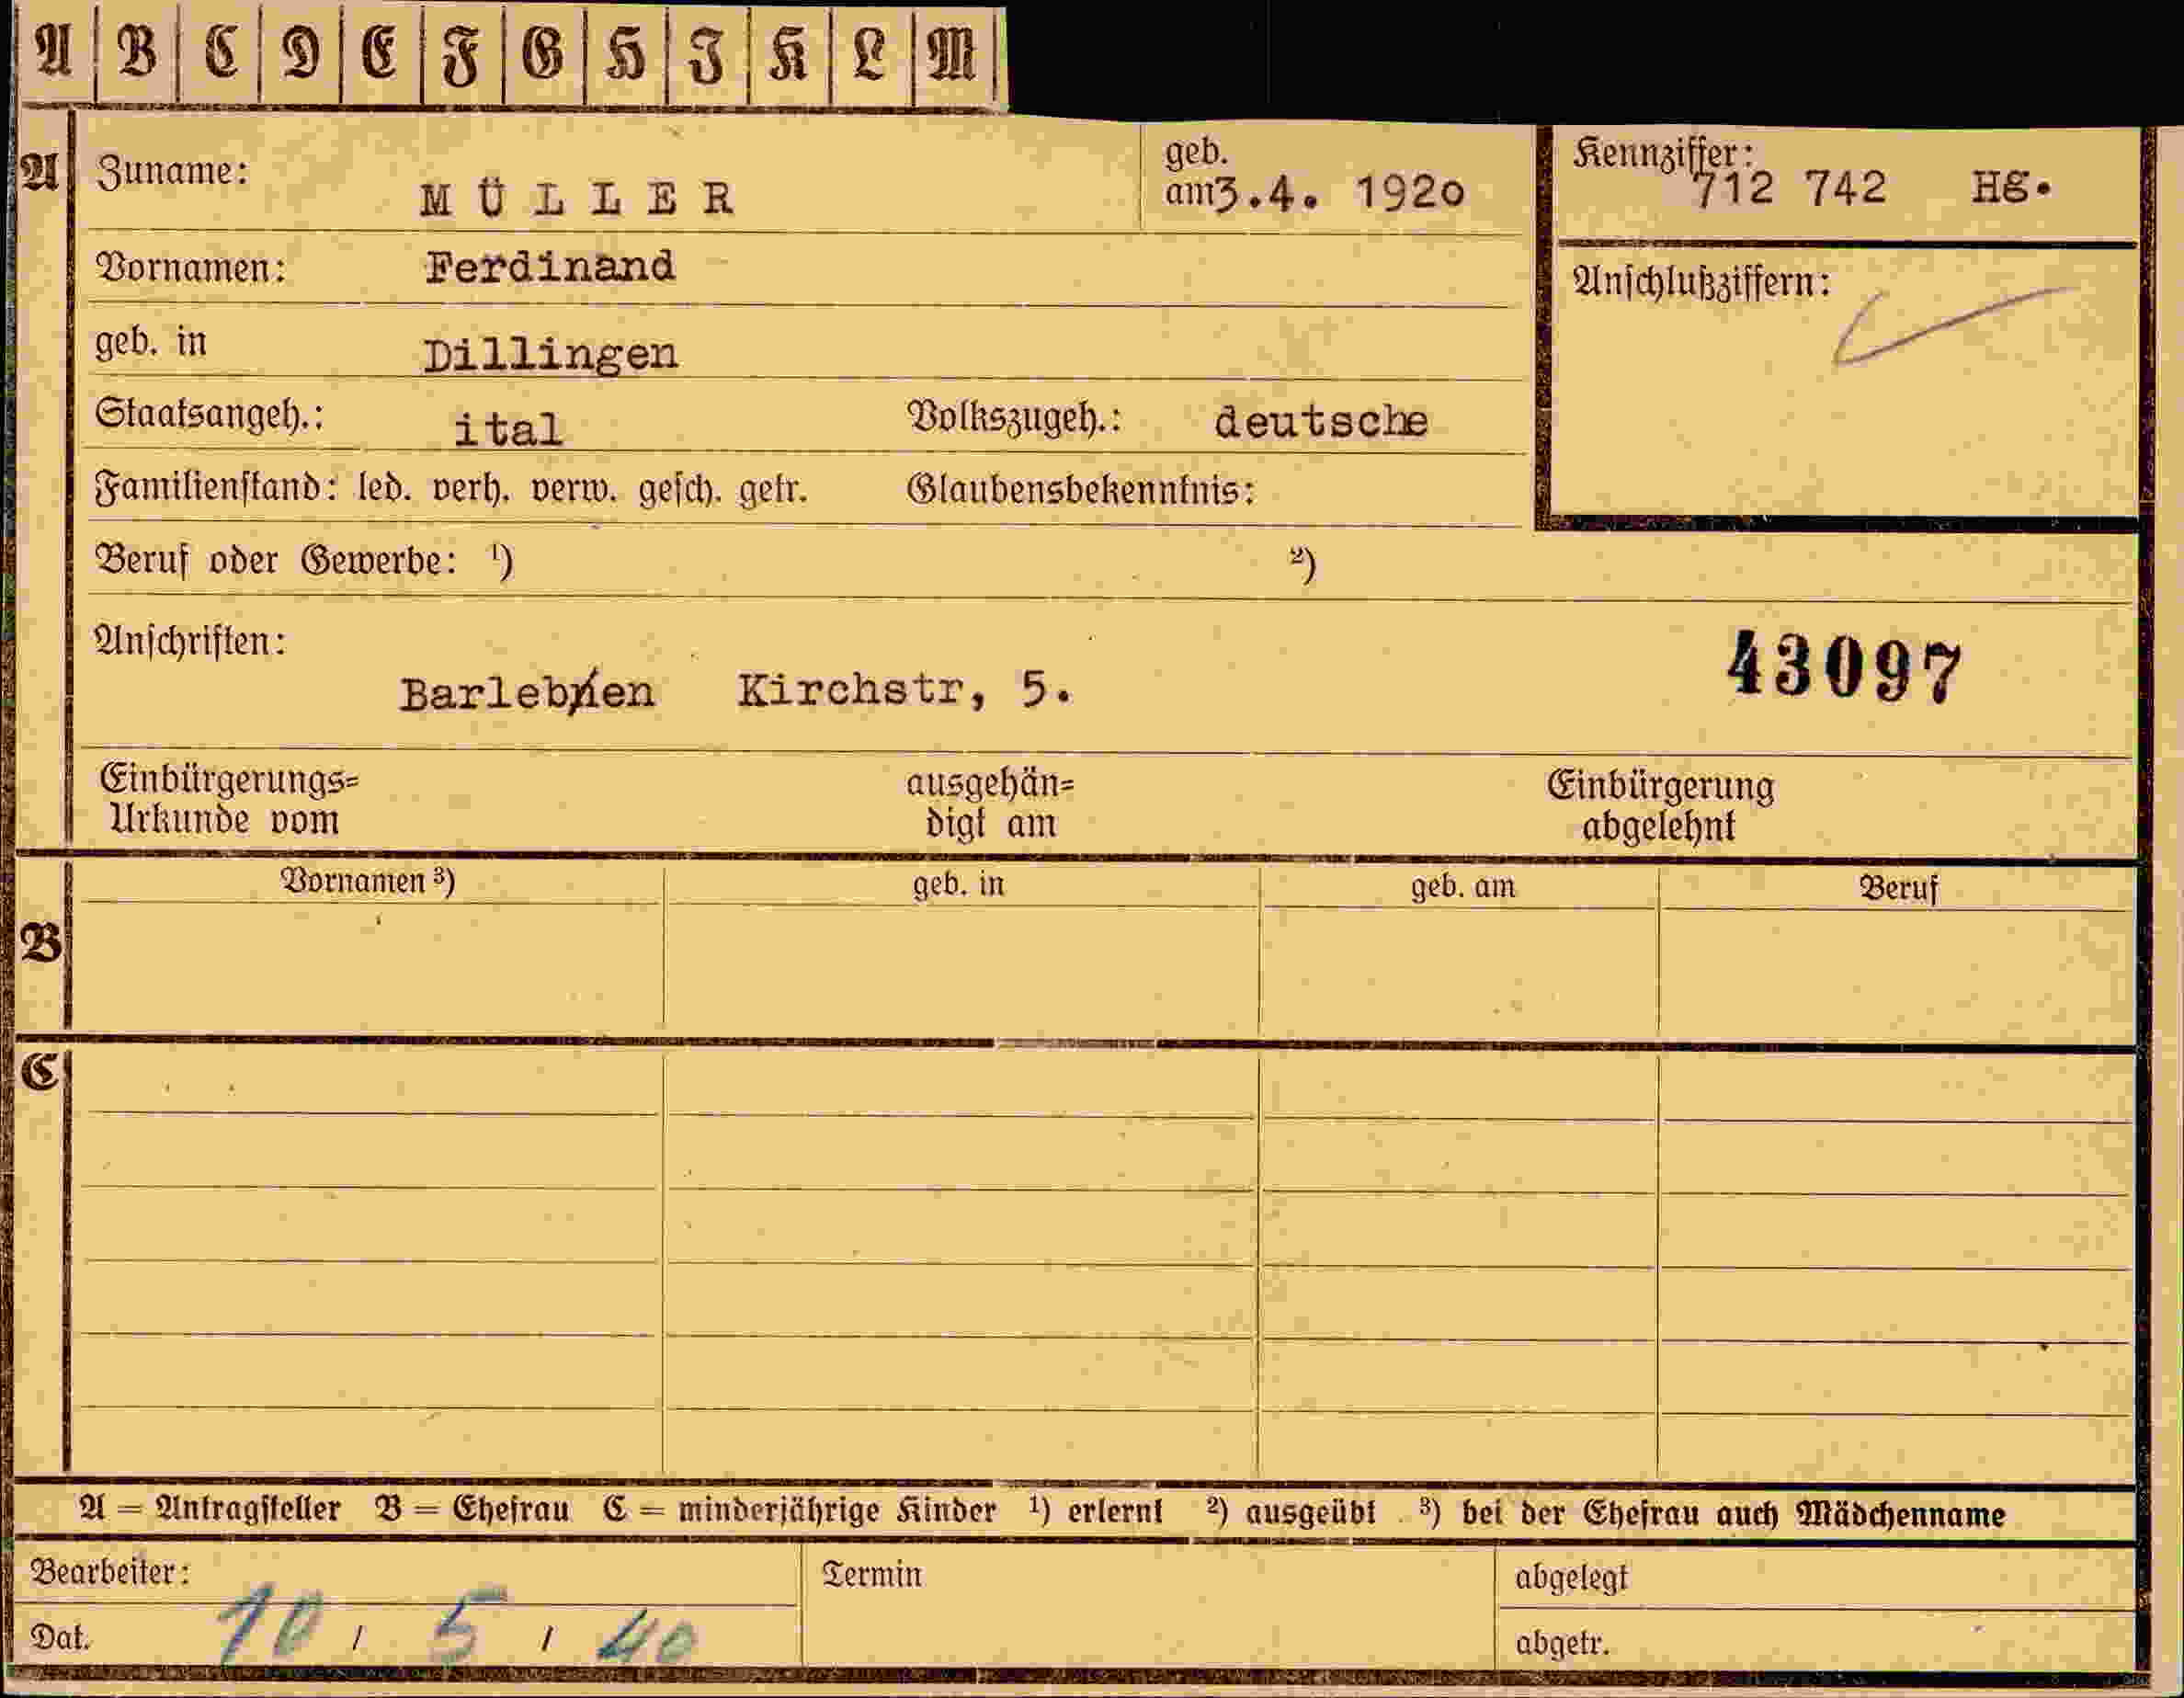 A B C D E F G H I K L M
A Zuname: MÜLLER geb. am 3.4. 1920 Kennziffer: 712 742 Hg.
Vornamen: Ferdinand Anschlußziffern:
geb. in Dillingen
Staatsangeh.: ital Volkszugeh.: deutsche
Familienstand: led. verh. verw. gesch. getr. Glaubensbekenntnis:
Beruf oder Gewerbe: ¹) ²)
Anschriften: 43097
Barleben Kirchstr, 5.
Einbürgerungs= ausgehän= Einbürgerung
Urkunde vom digt am abgelehnt
Vornamen ³) geb. in geb. am Beruf
B
C
A = Antragsteller B = Ehefrau C = minderjährige Kinder ¹) erlernt ²) ausgeübt ³) bei der Ehefrau auch Mädchenname
Bearbeiter: Termin abgelegt
Dat. 10 / 5 / 40 abgetr.